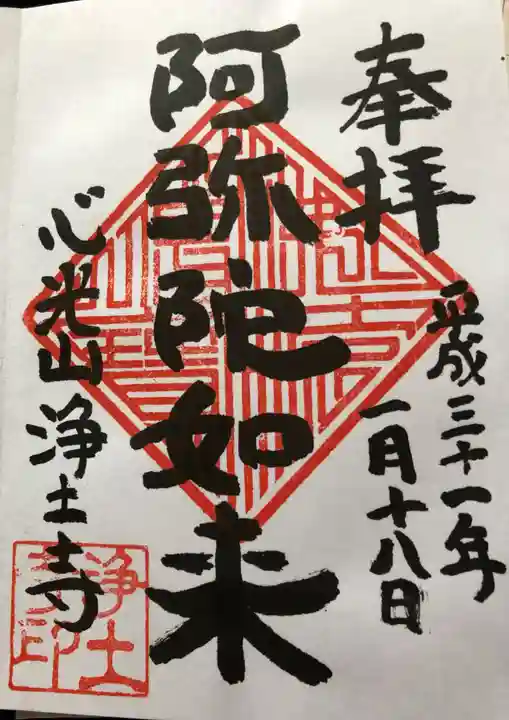 奉拝
平成三十一年
一月十八日
阿弥陀如来
心光山浄土寺
浄土
寺印